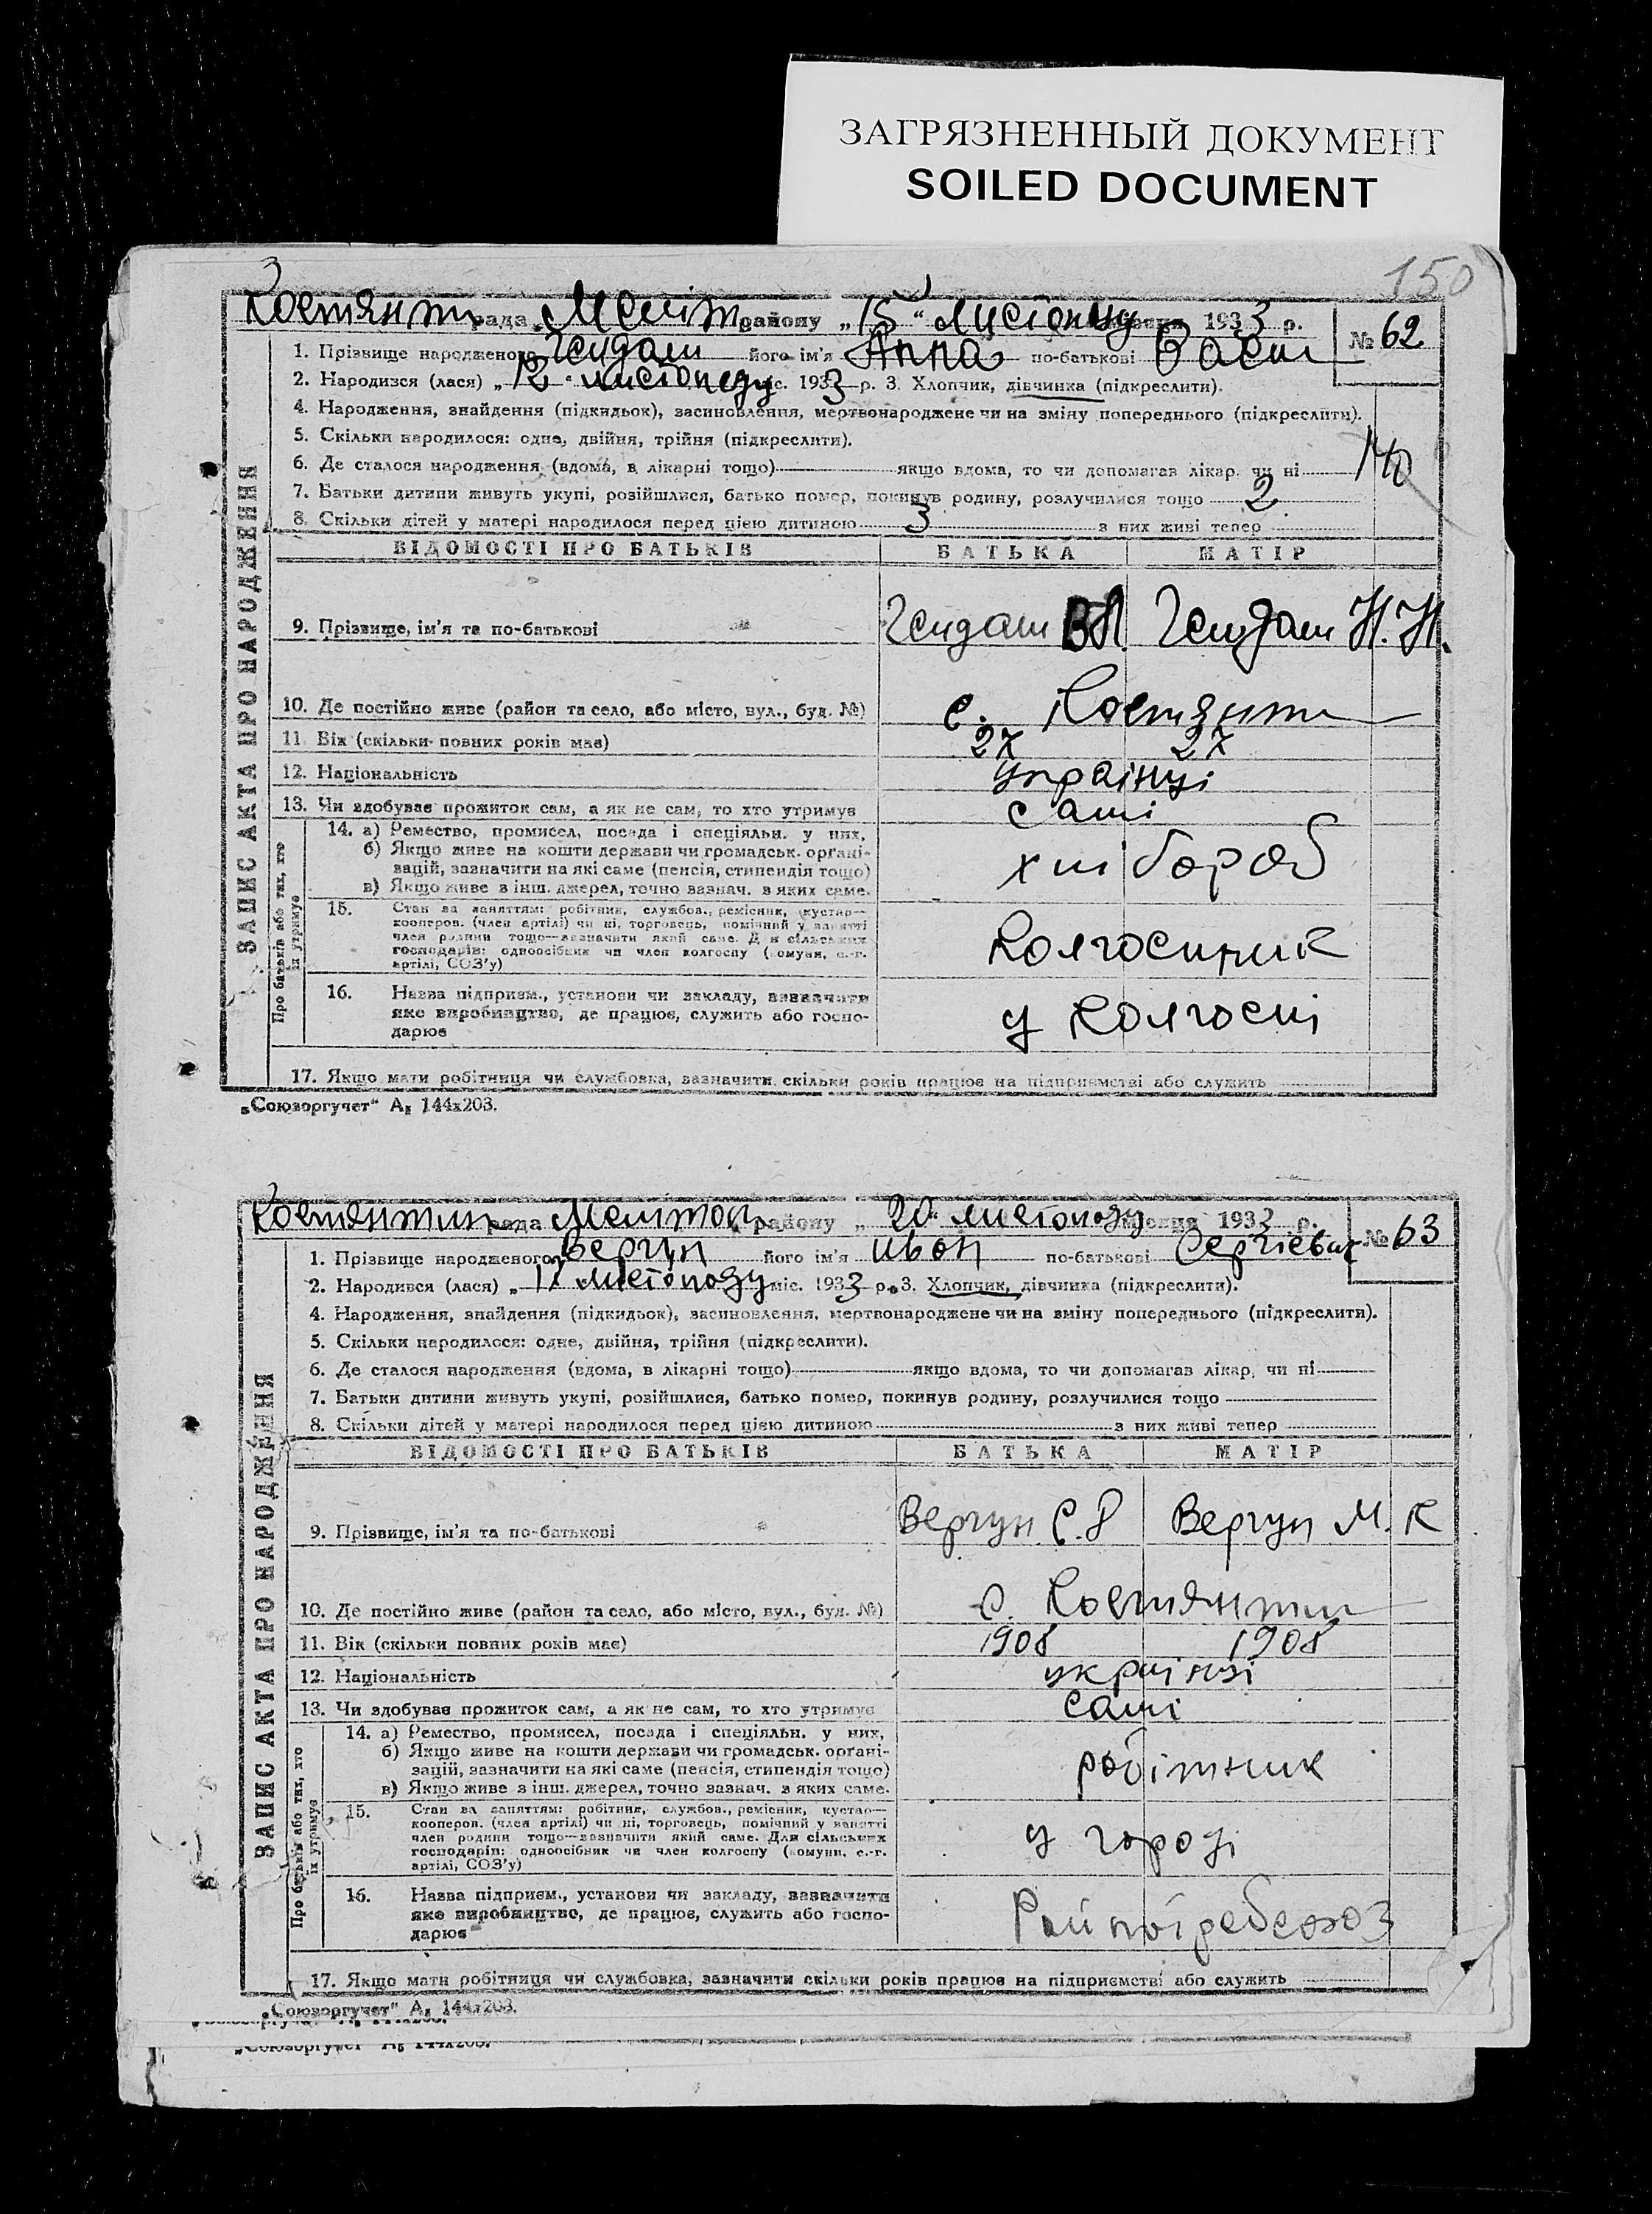 ЗАГРЯЗНЕННЫЙ ДОКУМЕНТ
SOILED DOCUMENT
150
ЗАПИС АКТА ПРО НАРОДЖЕННЯ
Костянти рада Меліт району „15“ листопаду 1933 р. № 62
1. Прізвище народженого його ім'я Анна по-батькові Васи
2. Народився (лася) „12“ листопаду міс. 1933 р. 3. Хлопчик, дівчинка (підкреслити).
4. Народження, знайдення (підкидьок), засиновлення, мертвонароджене чи на зміну попереднього (підкреслити).
5. Скільки народилося: одне, двійня, трійня (підкреслити).
6. Де сталося народження (вдома, в лікарні тощо) якщо вдома, то чи допомагав лікар, чи ні
7. Батьки дитини живуть укупі, розійшлися, батько помер, покинув родину, розлучилися тощо 2
8. Скільки дітей у матері народилося перед цією дитиною 3 з них живі тепер
ВІДОМОСТІ ПРО БАТЬКІВ БАТЬКА МАТІР
9. Прізвище, ім'я та по-батькові
10. Де постійно живе (район та село, або місто, вул., буд. №) с. Костянти
11. Вік (скільки повних років має) 27 27
12. Національність українці
13. Чи здобуває прожиток сам, а як не сам, то хто утримує самі
Про батьків або тих, хто їх утримує
14. а) Ремество, промисел, посада і спеціяльн. у них,
б) Якщо живе на кошти держави чи громадськ. органі-
зацій, зазначити на які саме (пенсія, стипендія тощо)
в) Якщо живе з інш. джерел, точно зазнач. з яких саме.
хлібороб
15. Стан за заняттям: робітник, службов., ремісник, кустар—
кооперов. (член артілі) чи ні, торговець, помічний у занятті
член родини тощо—зазначити який саме. Для сільських
господарів: одноосібник чи член колгоспу (комуни, с.-г.
артілі, СОЗ'у)
колгоспник
16. Назва підприєм., установи чи закладу, зазначити
яке виробництво, де працює, служить або госпо-
дарює
у колгоспі
17. Якщо мати робітниця чи службовка, зазначити скільки років працює на підприємстві або служить
„Союзоргучет“ А₅ 144x203.
ЗАПИС АКТА ПРО НАРОДЖЕННЯ
Костянтин рада Мелитоп району „20“ листопаду місяця 1933 р. № 63
1. Прізвище народженого Вергун його ім'я Иван по-батькові Сергієвич
2. Народився (лася) „ листопаду міс. 1933 р. 3. Хлопчик, дівчинка (підкреслити).
4. Народження, знайдення (підкидьок), засиновлення, мертвонароджене чи на зміну попереднього (підкреслити).
5. Скільки народилося: одне, двійня, трійня (підкреслити).
6. Де сталося народження (вдома, в лікарні тощо) якщо вдома, то чи допомагав лікар, чи ні
7. Батьки дитини живуть укупі, розійшлися, батько помер, покинув родину, розлучилися тощо
8. Скільки дітей у матері народилося перед цією дитиною з них живі тепер
ВІДОМОСТІ ПРО БАТЬКІВ БАТЬКА МАТІР
9. Прізвище, ім'я та по-батькові Вергун С. Вергун М. К
10. Де постійно живе (район та село, або місто, вул., буд. №) с. Костянти
11. Вік (скільки повних років має) 1908 1908
12. Національність українці
13. Чи здобуває прожиток сам, а як не сам, то хто утримує самі
Про батьків або тих, хто їх утримує
14. а) Ремество, промисел, посада і спеціяльн. у них,
б) Якщо живе на кошти держави чи громадськ. органі-
зацій, зазначити на які саме (пенсія, стипендія тощо)
в) Якщо живе з інш. джерел, точно зазнач. з яких саме.
робітник
15. Стан за заняттям: робітник, службов., ремісник, кустар—
кооперов. (член артілі) чи ні, торговець, помічний у занятті
член родини тощо—зазначити який саме. Для сільських
господарів: одноосібник чи член колгоспу (комуни, с.-г.
артілі, СОЗ'у)
у городі
16. Назва підприєм., установи чи закладу, зазначити
яке виробництво, де працює, служить або госпо-
дарює
Райпотребсоюз
17. Якщо мати робітниця чи службовка, зазначити скільки років працює на підприємстві або служить
„Союзоргучет“ А₅ 144x203.
„Союзоргучет“ А₅ 144x203.